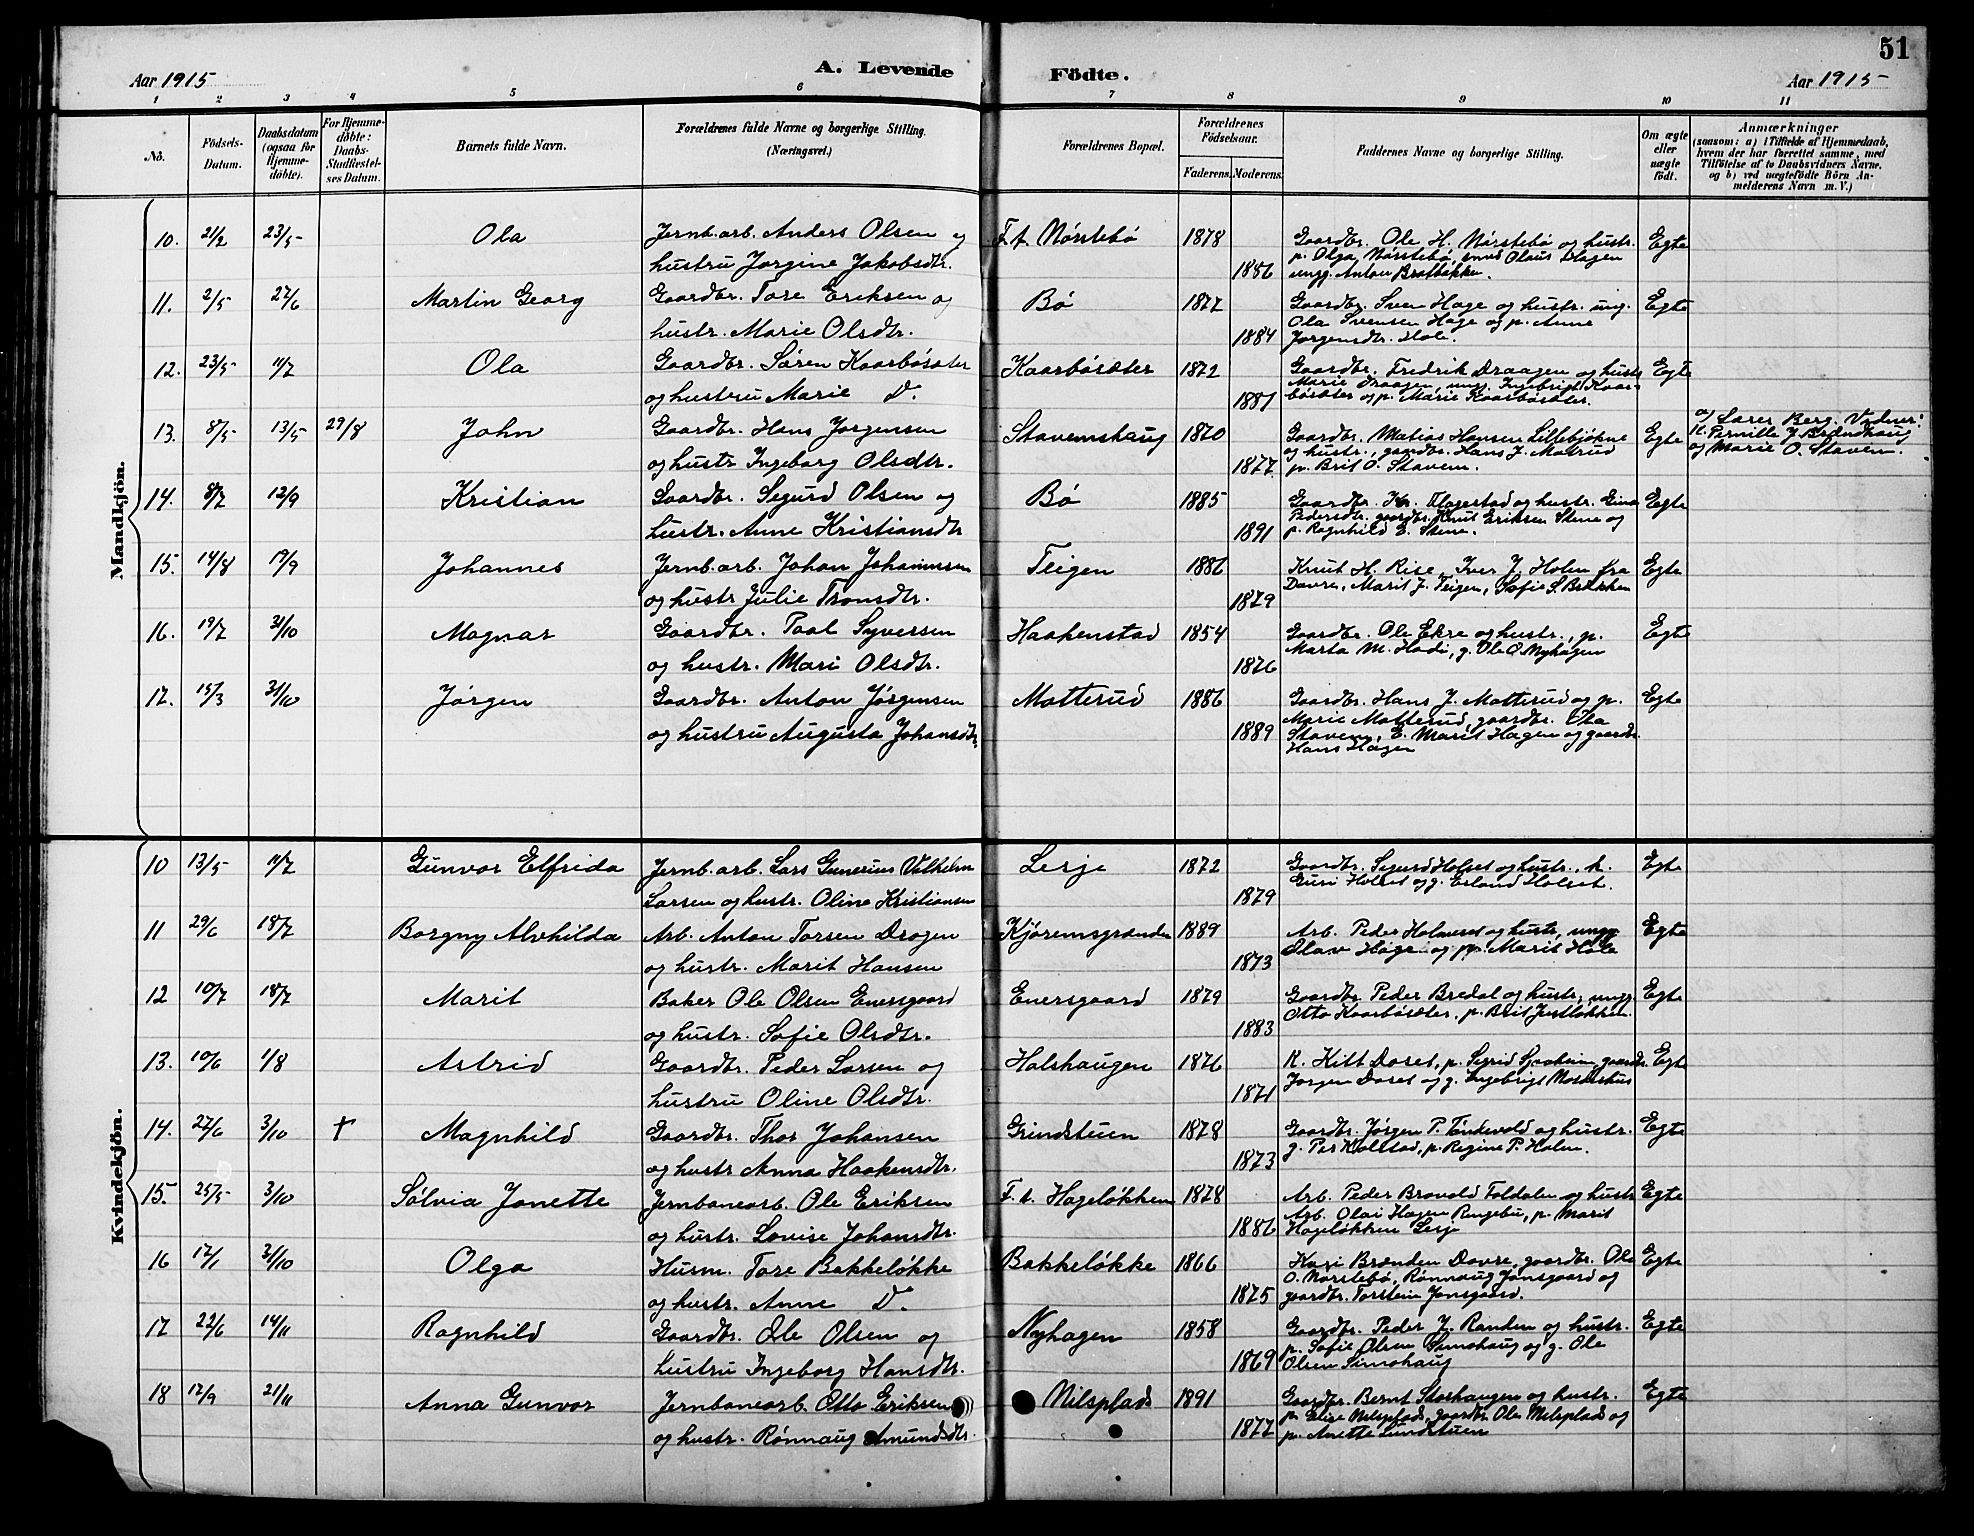 51
Aar 1915
A. Levende Födte.
Aar 1915
1 2 3 4 5 6 7 8 9 10 11
No.
Födsels-Datum.
Daabsdatum (ogsaa for Hjemme-döbte).
For Hjemme-döbte: Daabs-Stadfæstel-ses Datum.
Barnets fulde Navn.
Forældrenes fulde Navne og borgerlige Stilling.
(Næringsvei.)
Forældrenes Bopæl.
Forældrenes Födselsaar.
Faderens. Moderens.
Faddernes Navne og borgerlige Stilling.
Om ægte eller uægte födt.
Anmærkninger
(saasom: a) i Tilfælde af Hjemmedaab,
hvem der har forrettet samme, med
Tilföielse af to Daabsvidners Navne,
og b) ved uægtefödte Börn An-
melderens Navn m. V.)
Mandkjön.
10. 21/2 23/5 Ola Jernb.arb. Anders Olsen og F.t. Nørstebø 1878 Gaardbr. Ole H. Nørstebø og hustr. Egte
hustru Jørgine Jakobsdtr. 1886 p. Olga Nørstebø, smed Olaus Hagen
ungg. Anton Bratløkken.
11. 2/5 27/6 Martin Georg Gaardbr. Tore Eriksen og Bø 1877 Gaardbr. Sven Hage og hustr. ung. Egte
hustr. Marie Olsdtr. 1884 Ola Svensen Hage og p. Anne
Jørgensdtr. Hole.
12. 23/5 11/7 Ola Gaardbr. Søren Kaarbøsæter Kaarbøsæter 1872 Gaardbr. Fredrik Draagen og hustr. Egte
og hustru Marie D. 1887 Marie Draagen, ungg. Ingebrigt Kaar-
bøsæter og p. Marie Kaarbøsæter.
13. 8/5 13/5 29/8 John Gaardbr. Hans Jørgensen Stavemshaug 1870 Gaardbr. Matias Hansen Lillebjøkne Egte a) Lærer Berg. Vidner:
og hustr Ingeborg Olsdtr. 1877 og hustr., gaardbr. Hans J. Motrud K. Pernille J. Brændhaug
p. Brit O. Stavem. og Marie O. Stavem.
14. 8/7 12/9 Kristian Gaardbr. Segurd Olsen og Bø 1885 Gaardbr. Kr. Flagestad og hustr. Eina Egte
hustr. Anne Kristiansdtr 1891 Pedersdtr. gaardbr. Knut Eriksen Stene og
p. Ragnhild E. Stene.
15. 14/8 19/9 Johannes Jernb.arb. Johan Johannesen Teigen 1886 Knut H. Rise, Iver J. Holen fra Egte
og hustr Julie Tronsdtr. 1879 Dovre, Marit J. Teigen, Sofie S. Brækken
16. 19/7 31/10 Magnar Gaardbr. Paal Syversen Haakenstad 1854 Gaardbr. Ole Ekre og hustr., p. Egte
og hustr. Mari Olsdtr. 1876 Marta M. Hodi, g. Ole O. Nyhagen
17. 15/3 31/10 Jørgen Gaardbr. Anton Jørgensen Motterud 1886 Gaardbr. Hans J. Motterud og p. Egte
og hustru Augusta Johansdtr. 1889 Marie Motterud, gaardbr. Ola
Stavem, E. Marit Hagen og gaardbr.
Hans Hagen
Kvindekjön.
10 13/5 11/7 Gunvor Elfrida Jernb.arb. Lars Gunerius Vilhelm Lesje 1872 Gaardbr. Sigurd Holset og hustr., k. Egte
Larsen og hustr. Oline Kristiansen 1879 Guri Holset og g. Erland Holset.
11 29/6 18/7 Borgny Alvhilda Arb. Anton Torsen Drogen Kjøremsgrænden 1889 Arb. Peder Holmset og hustr., ungg. Egte
og hustr. Marit Hansen 1873 Olav Hage og p. Marit Hole
12 10/7 18/7 Marit Baker Ole Olsen Enersgaard Enersgaard 1879 Gaardbr. Peder Bredal og hustr., ungg. Egte
og hustr. Sofie Olsdtr. 1883 Otto Kaarbøsæter, p. Brit Jostløkken.
13. 10/6 1/8 Astrid Gaardbr. Peder Larsen og Holshaugen 1876 K. Kitt Doset, p. Sigrid gaardbr. Egte
hustru Oline Olsdtr. 1871 Jørgen Doset og g. Ingebrigt
14. 27/6 3/10 † Magnhild Gaardbr. Thor Johansen Grindstuen 1878 Gaardbr. Jørgen P. Tøndevold og hustr. Egte
og hustr Anna Haakensdtr. 1873 g. Per Kollstad, p. Regine P. Holen.
15. 25/5 3/10 Sølvia Jonette Jernbanearb. Ole Eriksen F.t. Hageløkken 1878 Arb. Peder Brovold Foldalen og hustr. Egte
og hustr. Lovise Johansdtr. 1886 Arb. Olai Hagen Ringebu, p. Marit
Hageløkken Lesje
16 17/1 31/10 Olga Husm. Tore Bakkeløkke Bakkeløkke 1866 Kari Brænden Dovre, gaardbr. Ola Egte
og hustr. Anne D. 1875 O. Nørstebø, Rønnaug Jonsgaard og
gaardbr. Torstein Jonsgaard.
17 22/6 14/11 Ragnhild Gaardbr. Ole Olsen og Nyhagen 1858 Gaardbr. Peder J. Randen og hustr. Egte
hustru Ingeborg Hansdtr. 1869 p. Sofie Olsen Simohaug og g. Ole
Olsen Simohaug
18 12/9 21/11 Anna Gunvor Jernbanearb. Otto Eriksen Nilsplads 1891 Gaardbr. Bernt Storhaugen og hustr. Egte
og hustr. Rønnaug Amundsdtr. 1877 p. Elise Nilsplads, gaardbr. Ole Nilsplads og
p. Anette Lundstuen